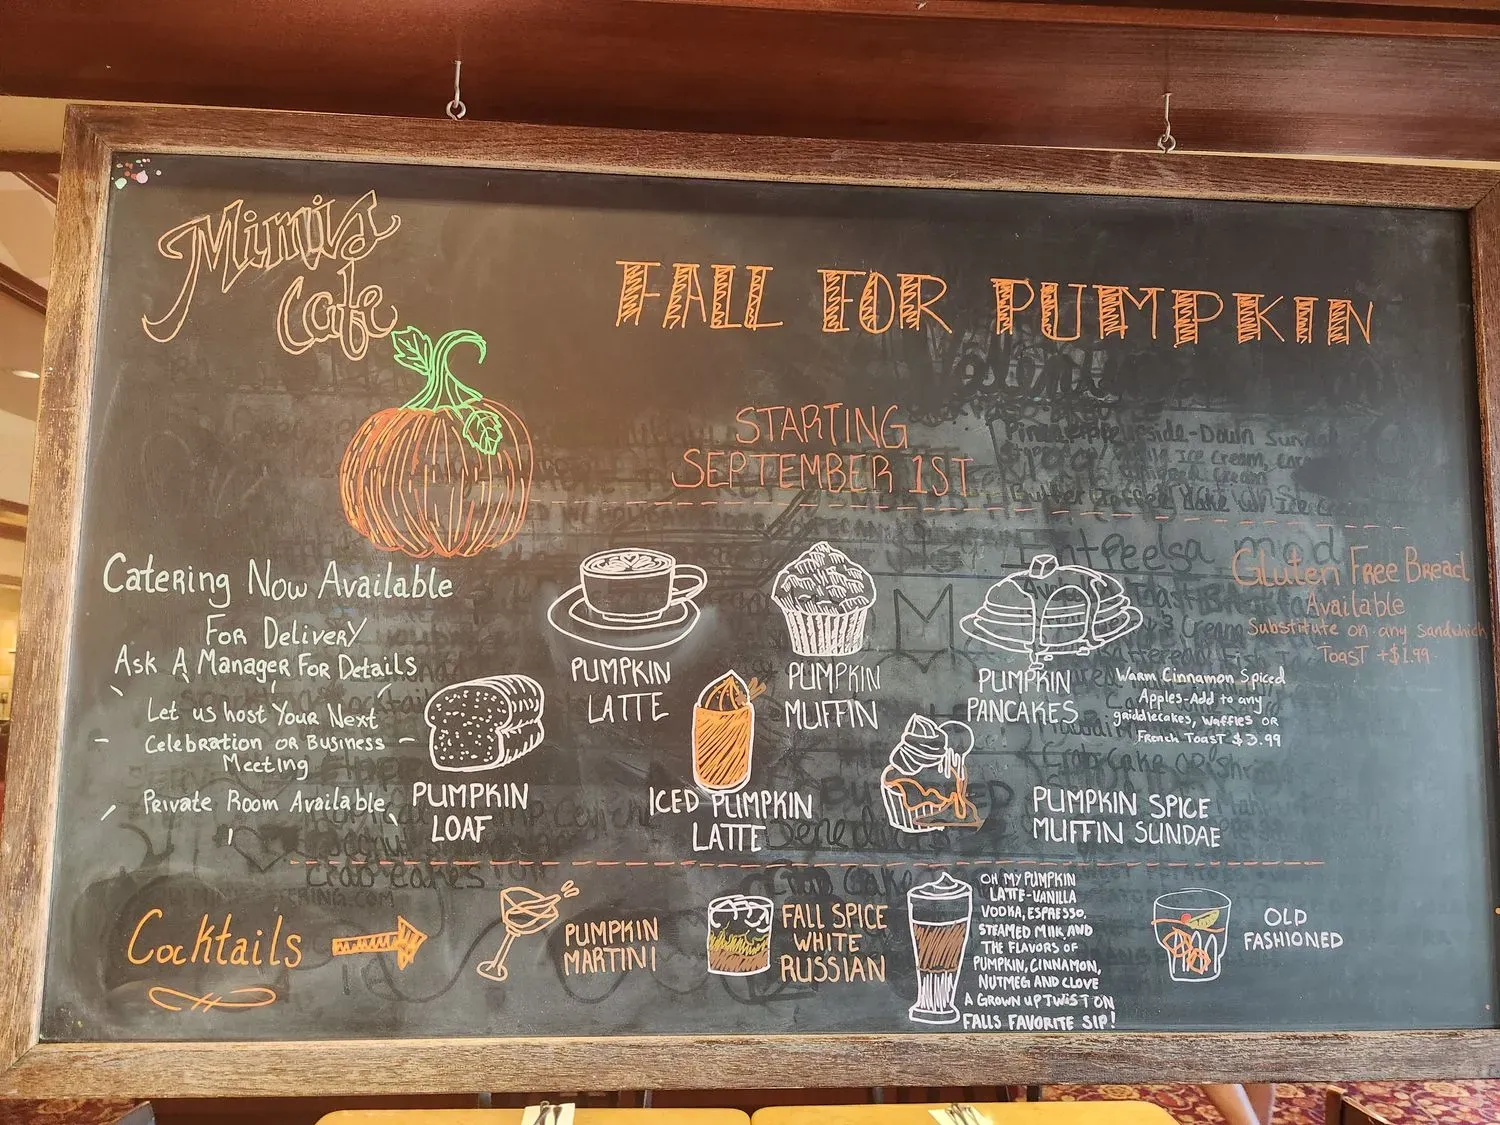 Mimi's
Cafe
FALL FOR PUMPKIN
STARTING
SEPTEMBER 1ST
Catering Now Available
For Delivery
Ask A Manager For Details
Let us host Your Next
Celebration or Business
Meeting
Private Room Available
PUMPKIN
LATTE
PUMPKIN
MUFFIN
PUMPKIN
PANCAKES
Warm Cinnamon Spiced
Apples-Add to any
griddlecakes, Waffles or
French Toast $3.99
Gluten Free Bread
Available
Substitute on any Sandwhich
Toast +$1.99
PUMPKIN
LOAF
ICED PUMPKIN
LATTE
PUMPKIN SPICE
MUFFIN SUNDAE
Cocktails
PUMPKIN
MARTINI
FALL SPICE
WHITE
RUSSIAN
OH MY PUMPKIN
LATTE-VANILLA
VODKA, ESPRESSO,
STEAMED MILK AND
THE FLAVORS OF
PUMPKIN, CINNAMON,
NUTMEG AND CLOVE
A GROWN UP TWIST ON
FALLS FAVORITE SIP!
OLD
FASHIONED